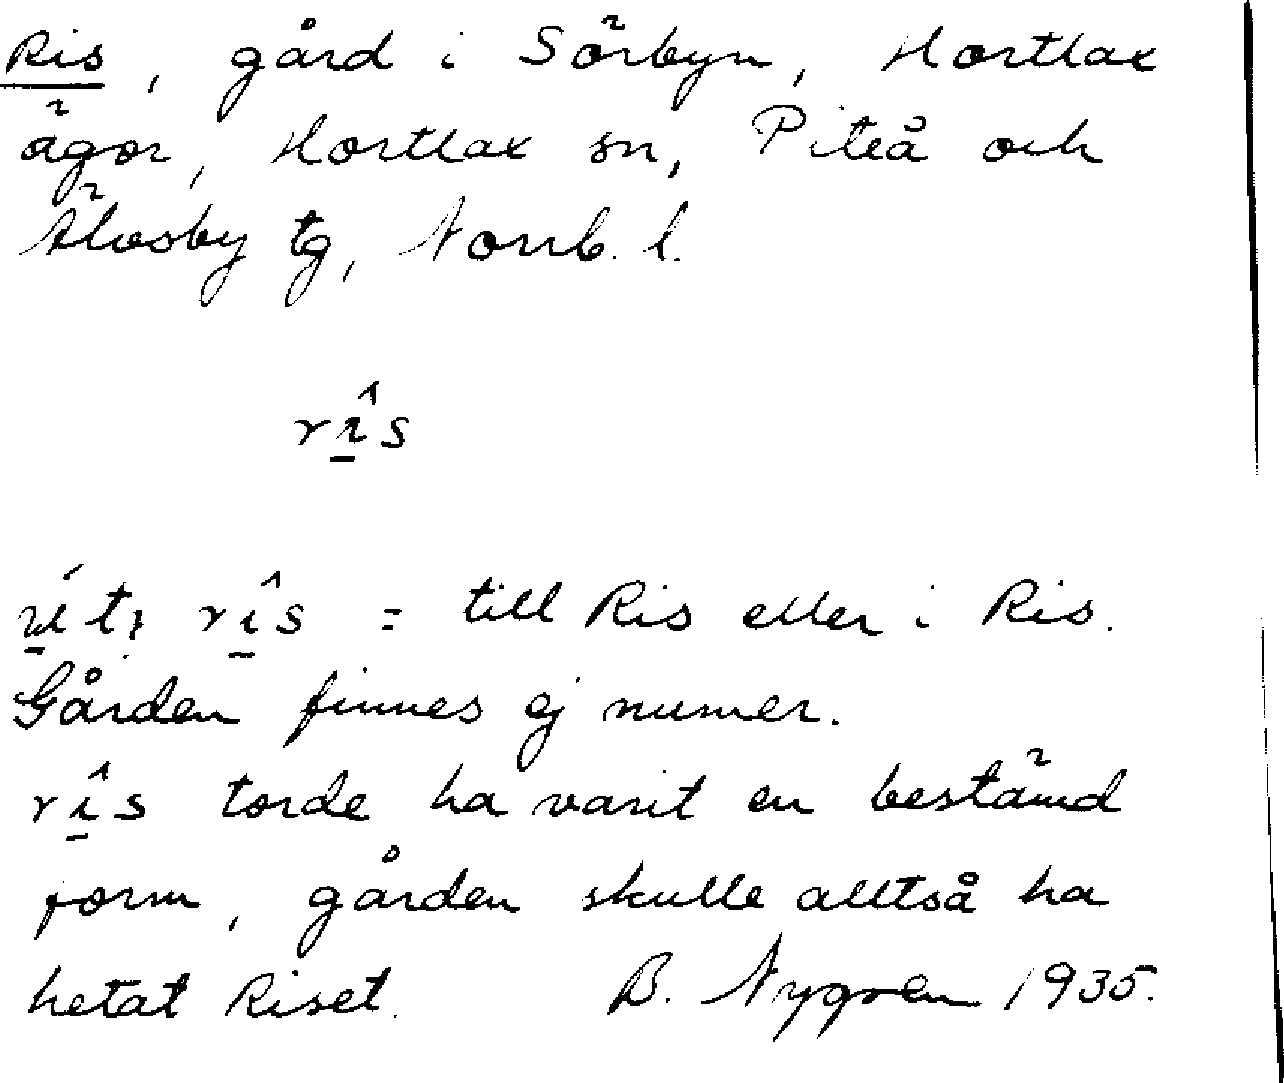 Ris, gård i Sörbyn, Hortlax
ägor, Hortlax sn, Piteå och
Älvsby tg, Norrb. l.
rîs
rîs = till Ris eller i Ris.
Gården finnes ej numer.
rîs torde ha varit en bestämd
form, gården skulle alltså ha
hetat Riset. B. Nygren 1935.